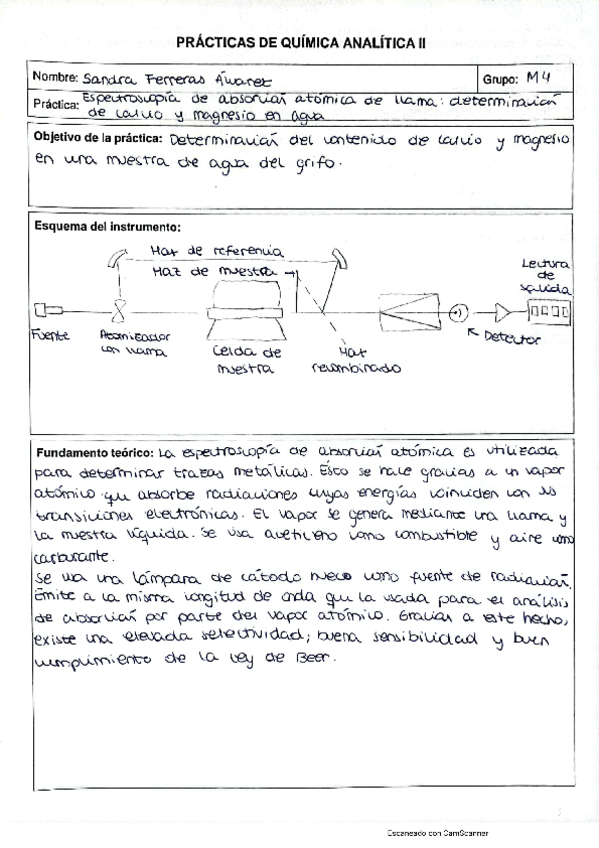 PRÁCTICAS DE QUÍMICA ANALÍTICA II
Nombre: Sandra Ferreras Álvarez
Grupo: M4
Práctica: Espectroscopía de absorción atómica de llama: determinación
de calcio y magnesio en agua
Objetivo de la práctica: Determinación del contenido de calcio y magnesio
en una muestra de agua del grifo.
Esquema del instrumento:
Haz de referencia
Haz de muestra
Lectura
de
salida
Fuente
Atomizador
con llama
Celda de
muestra
Haz
recombinado
Detector
Fundamento teórico: La espectroscopía de absorción atómica es utilizada
para determinar trazas metálicas. Esto se hace gracias a un vapor
atómico que absorbe radiaciones cuyas energías coinciden con sus
transiciones electrónicas. El vapor se genera mediante una llama y
la muestra líquida. Se usa acetileno como combustible y aire como
carburante.
Se usa una lámpara de cátodo hueco como fuente de radiación.
Emite a la misma longitud de onda que la usada para el análisis
de absorción por parte del vapor atómico. Gracias a este hecho,
existe una elevada selectividad, buena sensibilidad y buen
cumplimiento de la ley de Beer.
Escaneado con CamScanner